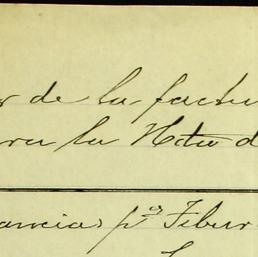 de la factu
la Nota d
ancias p.ª Tibur